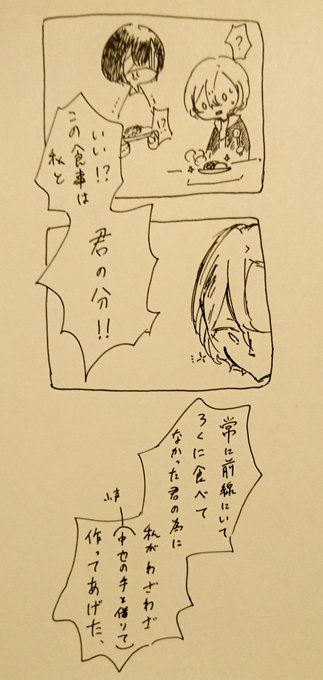 ?
!?
いい!?
この食事は
私と
君の分!!
常に前線にいて
ろくに食べて
なかった君の為に
私がわざわざ
小声
(中也の手を借りて)
作ってあげた、